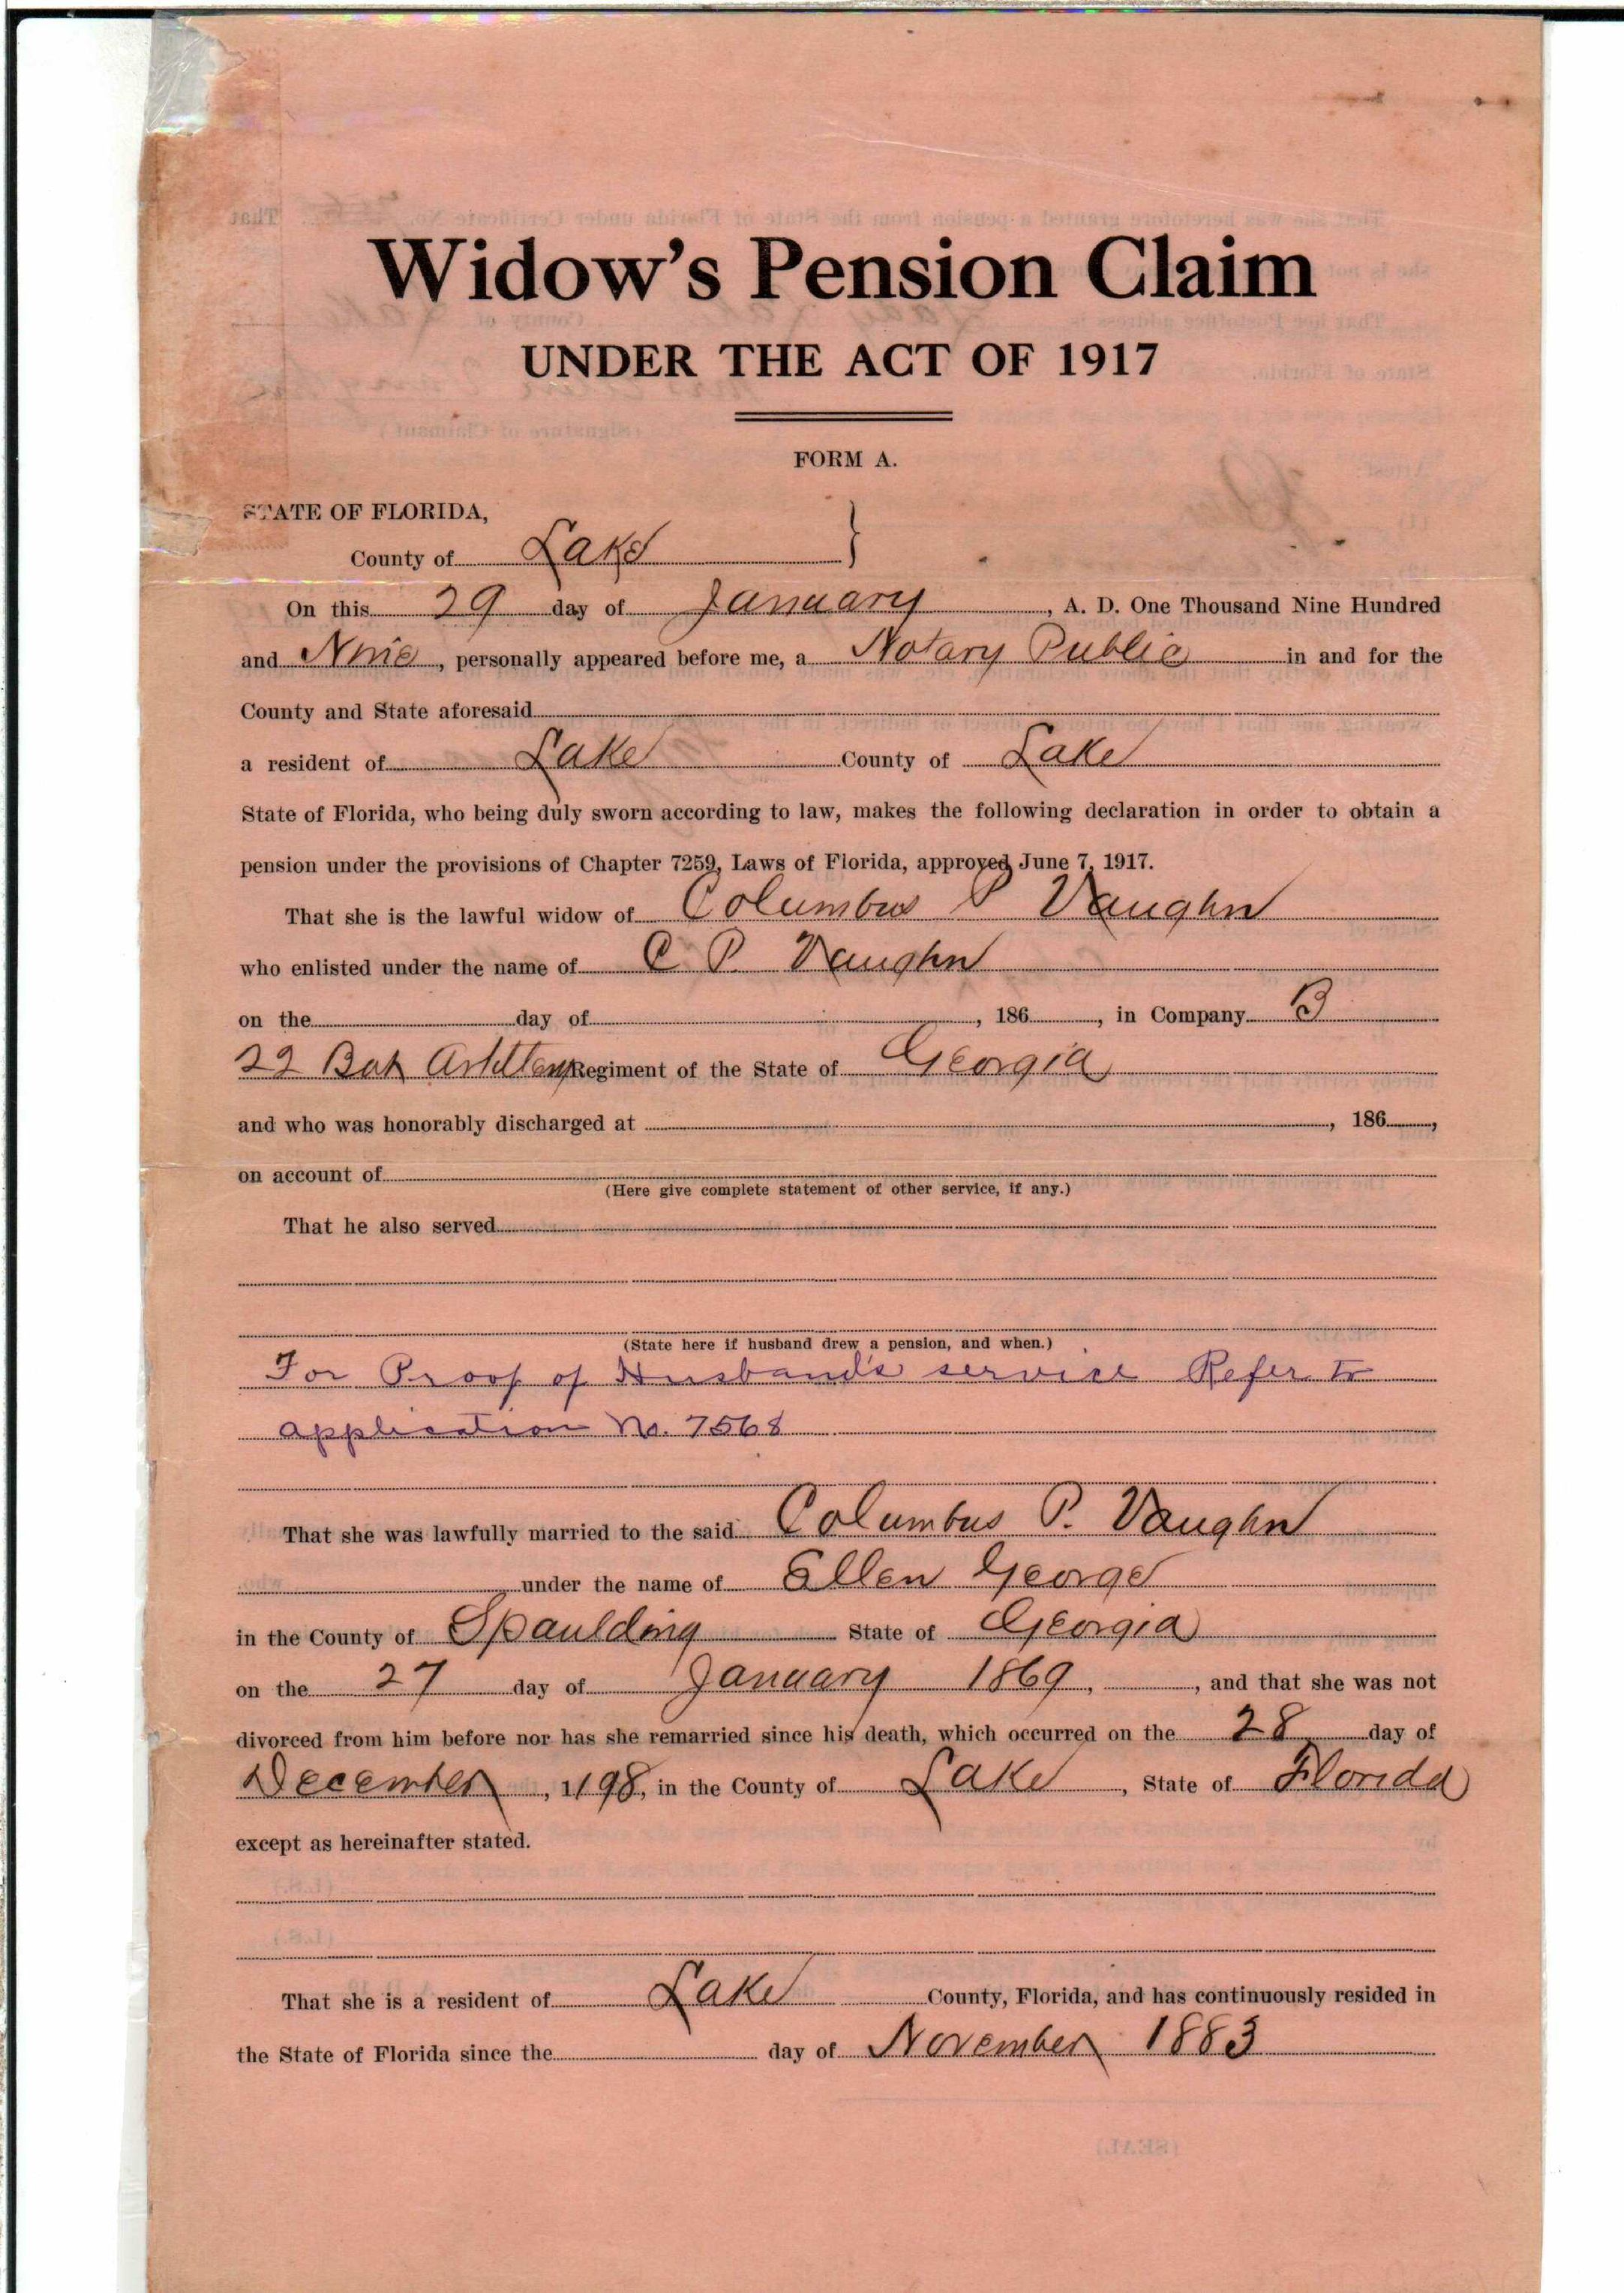 Widow's Pension Claim
UNDER THE ACT OF 1917
FORM A.
STATE OF FLORIDA,
County of Lake
On this 29 day of January, A. D. One Thousand Nine Hundred
and Nine, personally appeared before me, a Notary Public in and for the
County and State aforesaid
a resident of Lake County of Lake
State of Florida, who being duly sworn according to law, makes the following declaration in order to obtain a
pension under the provisions of Chapter 7259, Laws of Florida, approved June 7, 1917.
That she is the lawful widow of Columbus P Vaughn
who enlisted under the name of C P. Vaughn
on the day of , 186 , in Company B
22 Bat Regiment of the State of Georgia
and who was honorably discharged at , 186 ,
on account of
(Here give complete statement of other service, if any.)
That he also served
(State here if husband drew a pension, and when.)
For Proof of Husband's service Refer to
application No. 7568
That she was lawfully married to the said Columbus P. Vaughn
under the name of Ellen George
in the County of Spaulding State of Georgia
on the 27 day of January 1869, , and that she was not
divorced from him before nor has she remarried since his death, which occurred on the 28 day of
December, 1198, in the County of Lake, State of Florida
except as hereinafter stated.
That she is a resident of Lake County, Florida, and has continuously resided in
the State of Florida since the day of November 1883